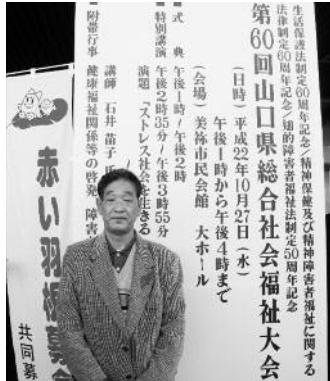 生活保護法制定60周年記念/精神保健及び精神障害者福祉に関する
法律制定60周年記念/知的障害者福祉法制定50周年記念
第60回山口県総合社会福祉大会
(日時) 平成22年10月27日(水)
午後1時から午後4時まで
(会場) 美祢市民会館 大ホール
■式 典 午後1時/午後2時
■特別講演 午後2時35分/午後3時55分
演題 「ストレス社会を生きる
講師 石井 苗子
■附帯行事 健康福祉関係等の啓発 障害
赤い羽根募金
共同募